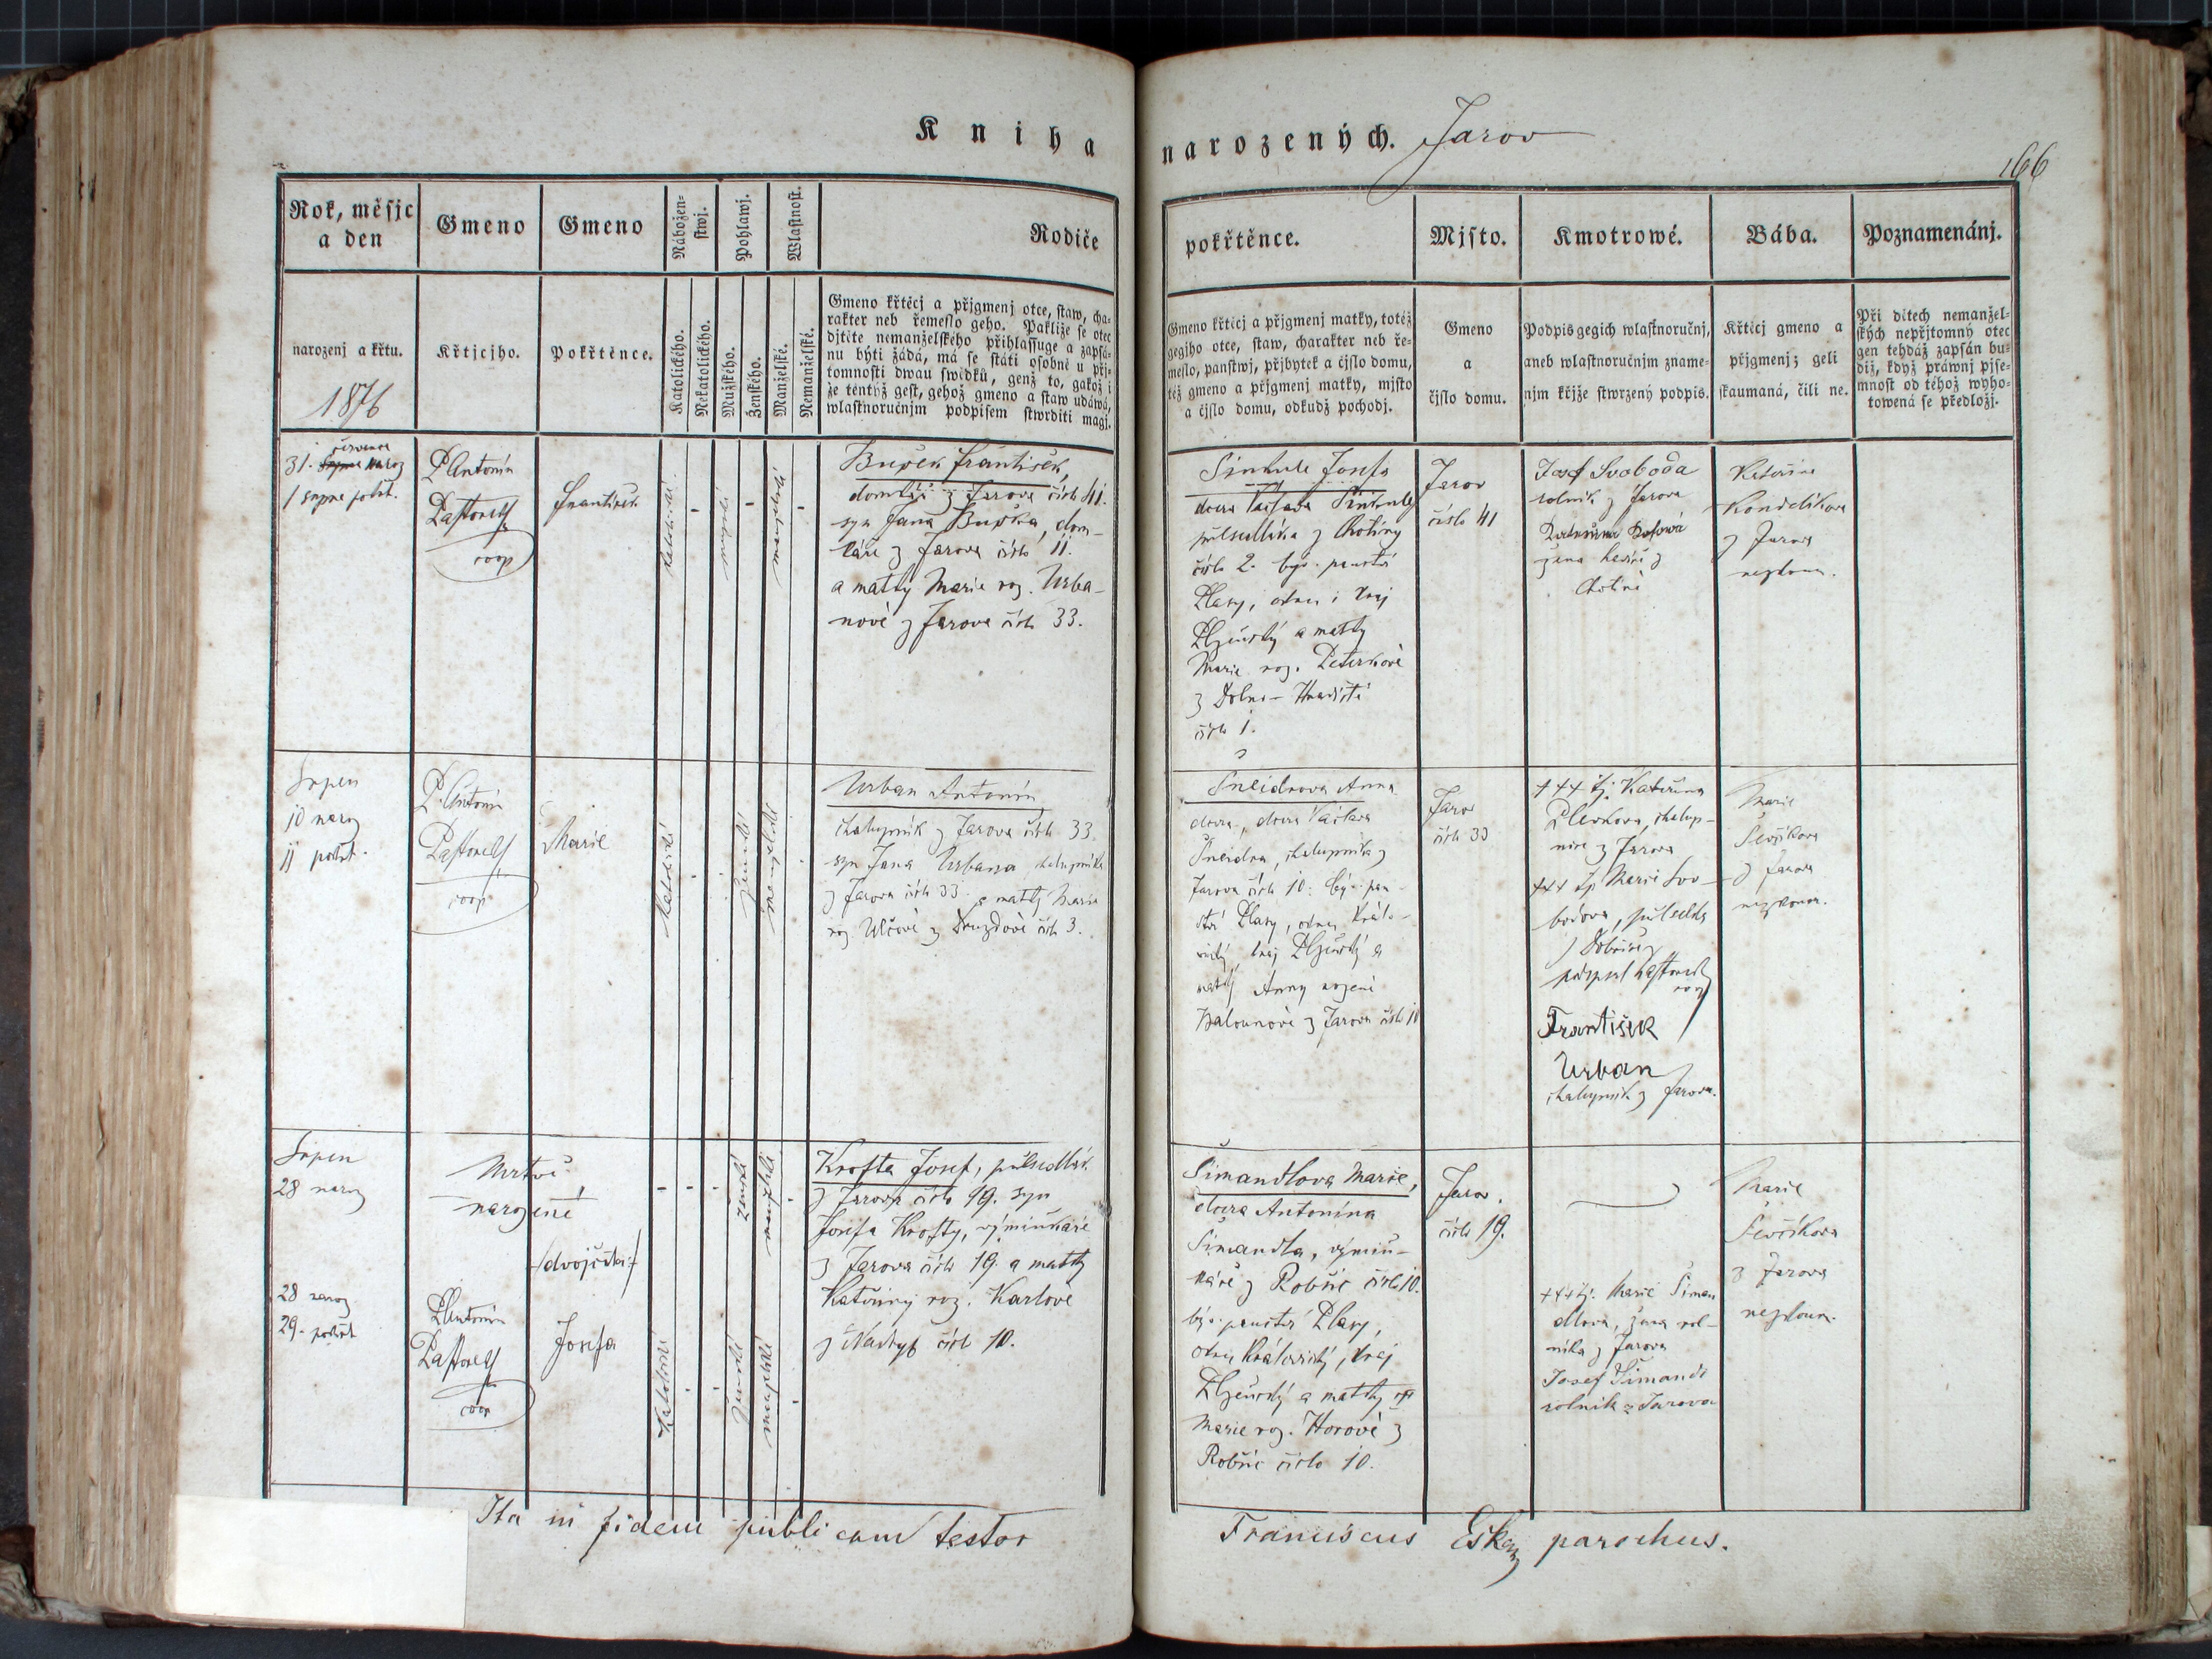 Kniha
narozených. Jarov
166
Rok, měsjc
a den
Gmeno
Gmeno
Nábožen=
stwj.
Pohlawj.
Wlastnost.
Rodiče
pokřtěnce.
Mjsto.
Kmotrowé.
Bába.
Poznamenánj.
narozenj a křtu.
1876
Křtjcjho.
Pokřtěnce.
Katolického.
Nekatolického.
Mužského.
Ženského.
Manželské.
Nemanželské.
Gmeno křtěcj a přjgmenj otce, staw, cha=
rakter neb řemeslo geho. Pakliže se otec
djtěte nemanželského přihlassuge a zapsá=
nu býti žádá, má se státi osobně u přj=
tomnosti dwau swědků, genž to, gakož i
že tentýž gest, gehož gmeno a staw udáwá,
wlastnoručnjm podpisem stwrditi magj.
Gmeno křtěcj a přjgmenj matky, totéž
gegjho otce, staw, charakter neb ře=
meslo, panstwj, přjbytek a čjslo domu,
též gmeno a přjgmenj matky, mjsto
a čjslo domu, odkudž pochodj.
Gmeno
a
čjslo domu.
Podpis gegich wlastnoručnj,
aneb wlastnoručnjm zname=
njm křjže stwrzený podpis.
Křtěcj gmeno a
přjgmenj; geli
skaumaná, čili ne.
Při dětech nemanžel=
ských nepřjtomný otec
gen tehdáž zapsán bu=
diž, když práwnj pjse=
mnost od téhož wyho=
towená se předložj.
července
31. naroz
1 srpna pokřt.
P. Antonín
Pastorell
coop
František
katolické
mužské
manželské
Buček František,
domkář z Jarova číslo 41.
syn Jana Bučka, dom-
káře z Jarova číslo 11.
a matky Marie roz. Urba-
nové z Jarova číslo 33.
Sinkule Josefa
dcera Václava Sinkule
půlsedláka z Chotiny
číslo 2. býv. panství
Plasy, okres i kraj
Plzeňský a matky
Marie roz. Peterkové
z Dolno-Hradiště
číslo 1.
Jarov
číslo 41
Josef Svoboda
rolník z Jarova
Kateřina
Kondelíkova
z Jarova
nezkoum.
Srpen
10 naroz
11 pokřt.
P. Antonín
Pastorell
coop
Marie
katolické
ženské
manželské
Urban Antonín
chalupník z Jarova číslo 33.
syn Jana Urbana, chalupníka
z Jarova číslo 33. a matky Marie
roz. Ulčové z Druzdové číslo 3.
Šneidrova Anna
dcera, dcera Václava
Šneidra, chalupníka z
Jarova číslo 10. býv. pan-
ství Plasy, okres Králo-
vický, kraj Plzeňský a
matky Anny rozené
Balounové z Jarova číslo 10
Jarov
číslo 33
+++ tj. Kateřina
chalup-
nice z Jarova
+++ tj. Marie Svo-
bodova,
podepsal Pastorell
coop
František
Urban
chalupník z Jarova.
Marie
Ševčíkova
z Jarova
nezkoum.
Srpen
28 naroz
Mrtvě
narozené
/dvojčátka/
ženské
manželské
Krofta Josef, půlsedlák
z Jarova číslo 19. syn
Josefa Krofty, výminkáře
z Jarova číslo 19. a matky
Kateřiny roz. Karlové
z Nachyt číslo 10.
28 naroz
29. pokřt
P. Antonín
Pastorell
coop
Josefa
katolické
ženské
manželské
Šimandlova Marie,
dcera Antonína
Šimandla, výmin-
káře z Robčic číslo 10.
býv. panství Plasy,
okres Kralovický, kraj
Plzeňský a matky
Marie roz. Horové z
Robčic číslo 10.
Jarov.
číslo 19.
+++ tj. Marie Šiman
dlova, žena rol-
níka z Jarova
Josef Šimandl
rolník z Jarova
Marie
Ševčíkova
z Jarova
nezkoum.
Ita in fidem publicam testor
Franciscus parochus.